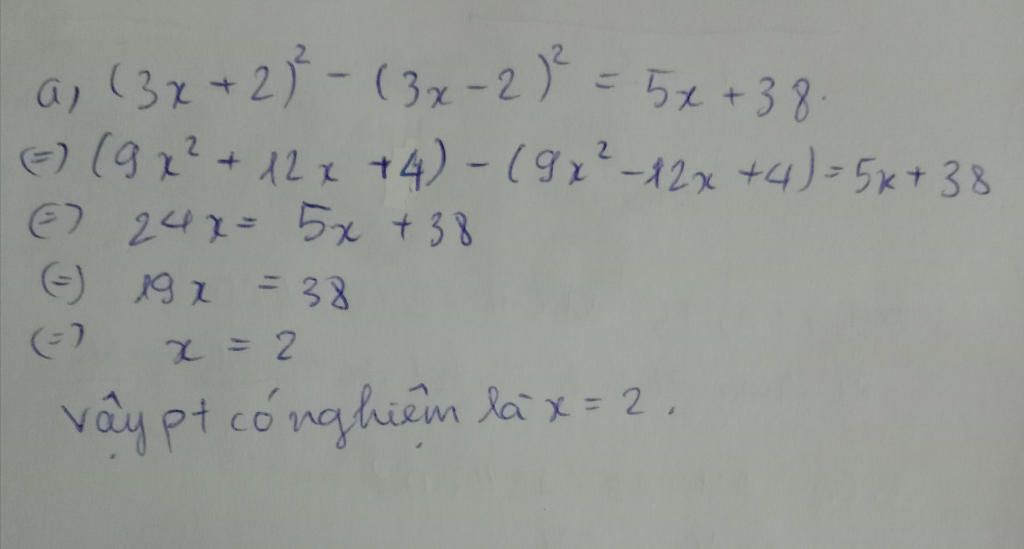 a, (3x + 2)² - (3x - 2)² = 5x + 38.
(=) (9x² + 12x + 4) - (9x² - 12x + 4) = 5x + 38
(=) 24x = 5x + 38
(=) 19x = 38
(=) x = 2
Vậy pt có nghiệm là x = 2.